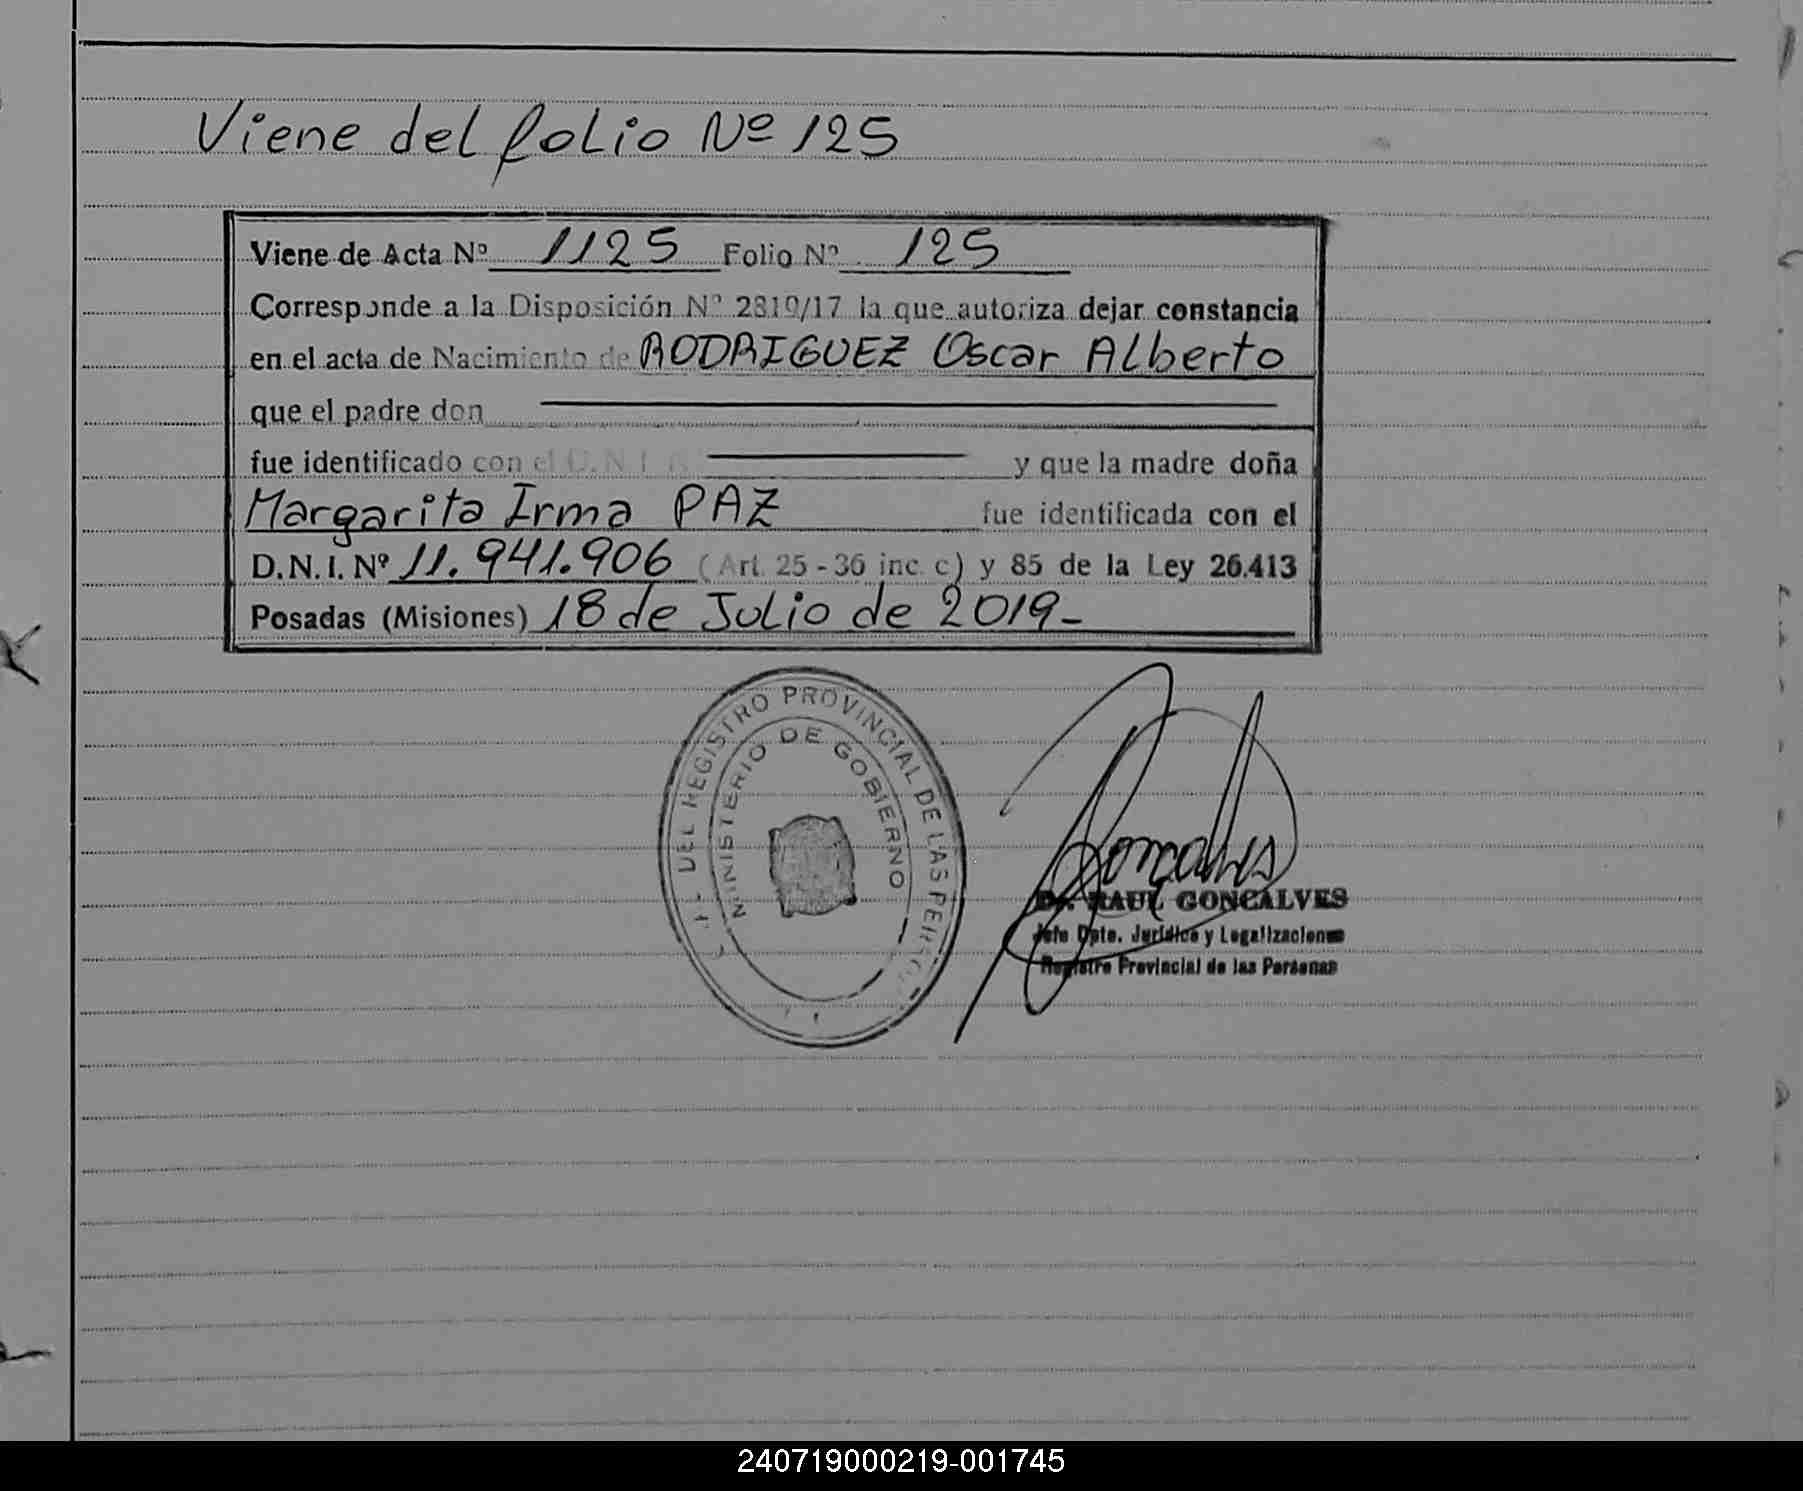 Viene del folio Nº 125
Viene de Acta Nº 1125 Folio Nº 125
Corresponde a la Disposición Nº 2819/17 la que autoriza dejar constancia
en el acta de Nacimiento de RODRIGUEZ Oscar Alberto
que el padre don
fue identificado con el D.N.I. Nº y que la madre doña
Margarita Irma PAZ fue identificada con el
D.N.I. Nº 11.941.906 (Art. 25 - 36 inc. c) y 85 de la Ley 26.413
Posadas (Misiones) 18 de Julio de 2019-
DEL REGISTRO PROVINCIAL DE LAS PERSO
MINISTERIO DE GOBIERNO
Goncalves
Dr. RAUL GONCALVES
Jefe Dpto. Jurídico y Legalizaciones
Registro Provincial de las Personas
240719000219-001745